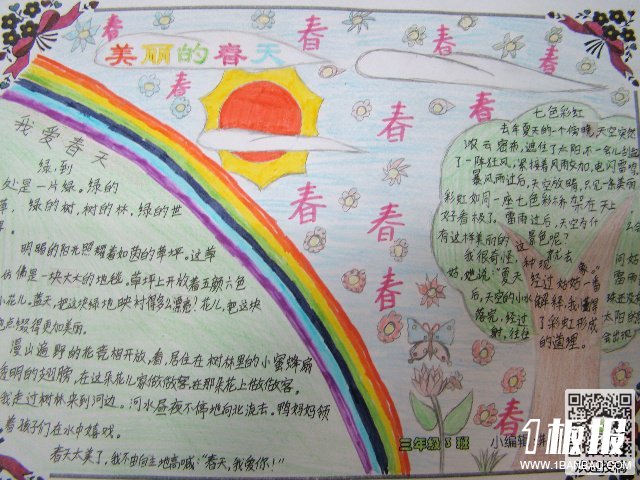 美丽的春天
春
春
春
春
春
春
春
春
春
春
春
春
我爱春天
绿,到
处是一片绿。绿的
草,绿的树,树的林,绿的世
明媚的阳光照耀着如茵的草坪。这草
仿佛是一块大大的地毯,草坪上开放着五颜六色
小花儿。蓝天,把这块绿地映衬得多么漂亮!花儿,把这块
点缀得更如美丽。
漫山遍野的花竞相开放,看,居住在树林里的小蜜蜂扇
透明的翅膀,在这朵花儿家做做客,在那朵花上做做客。
我走过树林来到河边。河水昼夜不停地向北流去,鸭妈妈领
着孩子们在水中嬉戏。
春天太美了,我不由自主地高喊:“春天,我爱你!”
七色彩虹
去年夏天的一个傍晚,天空突然
浓云密布,遮住了太阳,不一会儿刮起
了一阵狂风,紧接着风雨交加,电闪雷鸣,
暴风雨过后,天空放晴,只见一条美丽
彩虹如同一座七色彩桥架在天上
好看极了。雷雨过后,天空为什
有这样美丽的这景色呢?
我很奇怪,就去
种现象。
她说:“夏天
经过奶奶一番
后,天空的小水
解释,我懂得
落完,经过
了彩虹形成
射,往往
的道理。
三年级3班
小编辑:
1板报
WWW.1BANBAO.COM